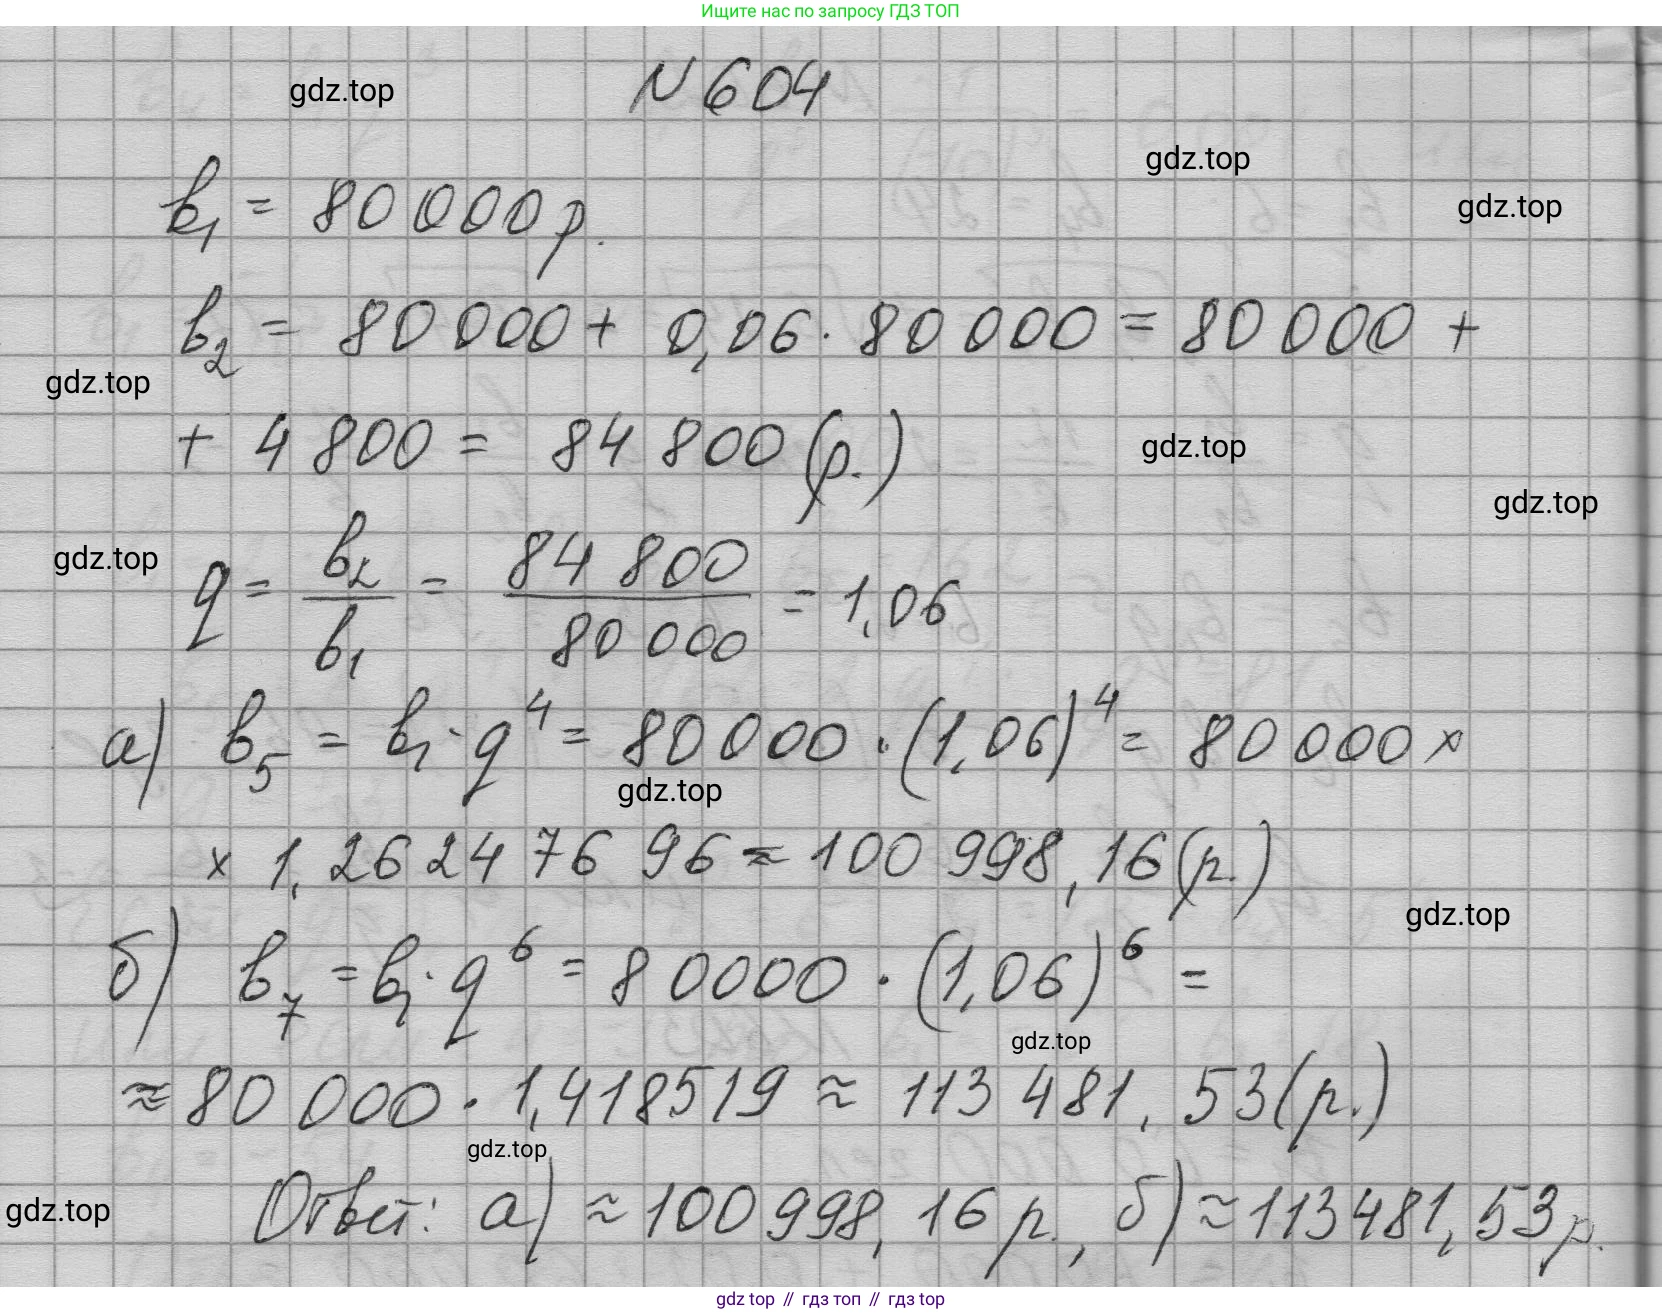 Ищите нас по запросу ГДЗ ТОП
gdz.top
N 604
gdz.top
b₁ = 80 000 р.
gdz.top
b₂ = 80 000 + 0,06 · 80 000 = 80 000 +
gdz.top
+ 4 800 = 84 800 (р.)
gdz.top
gdz.top
gdz.top
q = b₂/b₁ = 84 800/80 000 = 1,06
а) b₅ = b₁ · q⁴ = 80 000 · (1,06)⁴ = 80 000 ×
gdz.top
× 1,26 24 76 96 ≈ 100 998,16 (р.)
gdz.top
б) b₇ = b₁ · q⁶ = 80000 · (1,06)⁶ =
gdz.top
≈ 80 000 · 1,418519 ≈ 113 481,53 (р.)
gdz.top
Ответ: а) ≈ 100 998,16 р., б) ≈ 113 481,53 р.
gdz.top
gdz top // гдз топ // гдз top